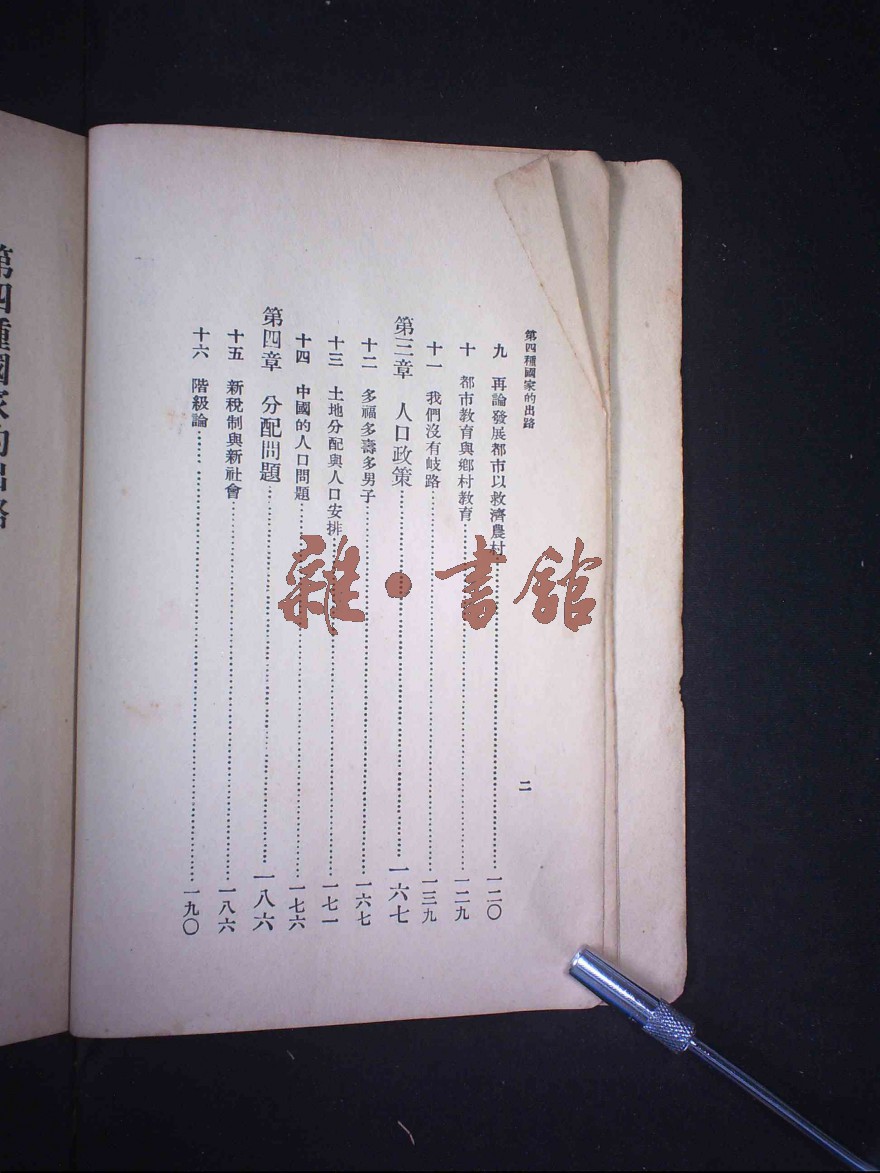 第四種國家的出路
二
九 再論發展都市以救濟農村…………一二〇
十 都市教育與鄉村教育…………一二九
十一 我們沒有岐路…………一三九
第三章 人口政策…………一六七
十二 多福多壽多男子…………一六七
十三 土地分配與人口安排…………一七一
十四 中國的人口問題…………一七六
第四章 分配問題…………一八六
十五 新稅制與新社會…………一八六
十六 階級論…………一九〇
第四種國家的出路
雜·書館